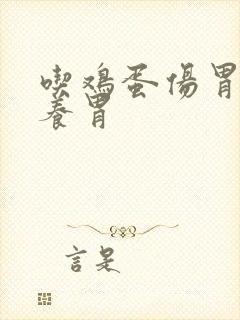 喫鸡蛋傷胃
養胃
言是